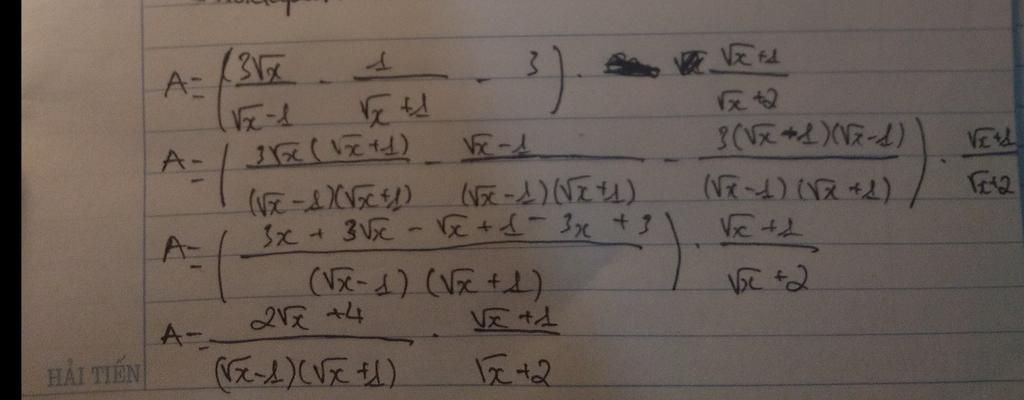 A = (3√x/(√x-1) - 1/(√x+1) - 3) . (√x+1)/(√x+2)
A = (3√x(√x+1)/((√x-1)(√x+1)) - (√x-1)/((√x-1)(√x+1)) - 3(√x+1)(√x-1)/((√x-1)(√x+1))) . (√x+1)/(√x+2)
A = ((3x + 3√x - √x + 1 - 3x + 3)/((√x-1)(√x+1))) . (√x+1)/(√x+2)
A = (2√x+4)/((√x-1)(√x+1)) . (√x+1)/(√x+2)
HẢI TIẾN